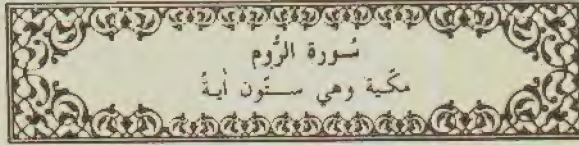 سُورة الرُّوم
مكّية وهي ستّون أيةً